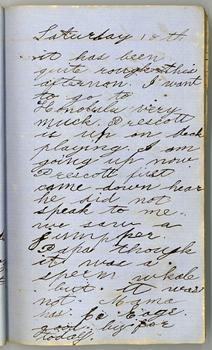 Saturday 18th
it has been
quite rough this
afternon. I want
to go to
Honolulu very
much Prescott
is up on deck
playing I am
going up now
Prescott just
came down hear
he did not
speak to me.
we saw a
jumpper.
Papa though
it was a
sperm whale
but it was
not. Mama
has
good by for
today.